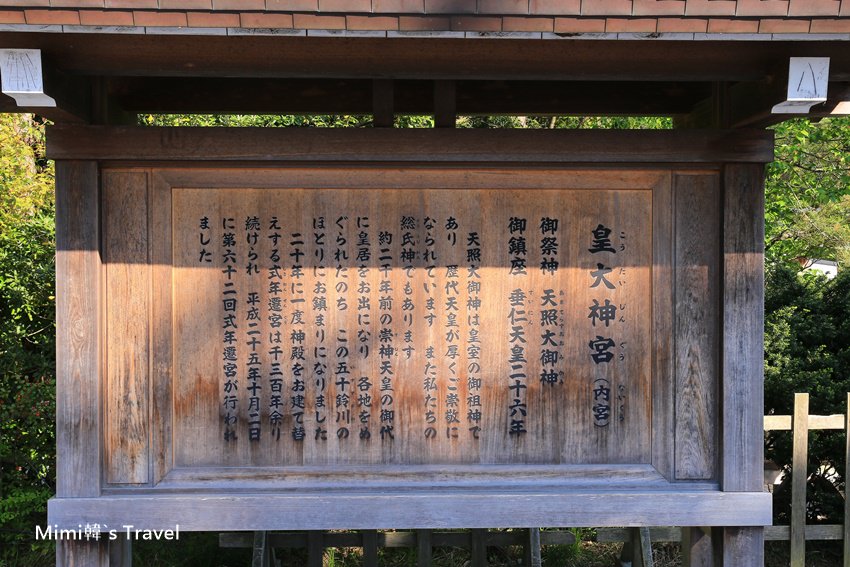 皇大神宮（内宮）
こうたいじんぐう
ないくう
御祭神　天照大御神
あまてらすおおみかみ
御鎮座　垂仁天皇二十六年
すいにん
天照大御神は皇室の御祖神で
あり　歴代天皇が厚くご崇敬に
なられています　また私たちの
総氏神でもあります
約二千年前の崇神天皇の御代
に皇居をお出になり　各地をめ
ぐられたのち　この五十鈴川の
ほとりにお鎮まりになりました
二十年に一度神殿をお建て替
えする式年遷宮は千三百年余り
続けられ　平成二十五年十月二日
に第六十二回式年遷宮が行われ
ました
Mimi韓`s Travel